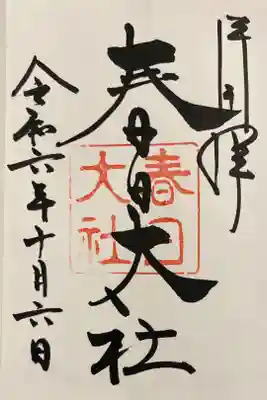 春日大社
春日
大社
令和六年十月六日